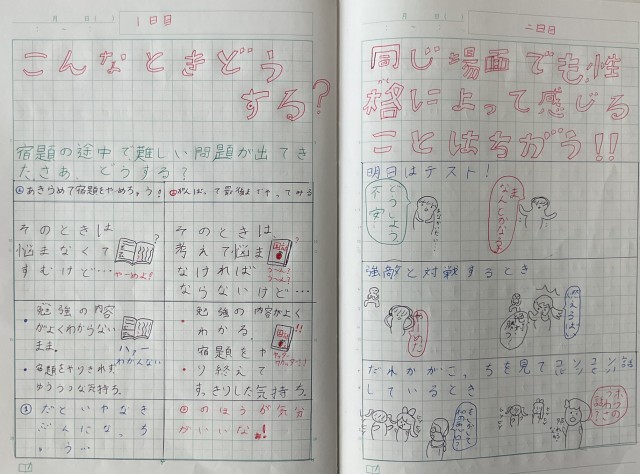 月 日
1日目
こんなときどう
する?
宿題の途中で難しい問題が出てき
たさあ、どうする?
①あきらめて宿題をやめちゃう!
②がんばって最後までやってみる
そのときは
悩まなくて
すむけど…
やーめよ!
そのときは、
考えて悩ま
なければ
ならないけど…
うーん!
うーん?
・勉強の内容
がよくわからない
まま。
・宿題をやりきれず、
ゆううつな気持ち。
ハァー
わかんない
・勉強の内容がよく
わかる。
・宿題をや
り終えて
すっきりした気持ち。
①だといやなき
ぶんになっち
ゃう…
②のほうが気分
がいいな!
月 日
二日目
同じ場面でも性
格によって感じる
ことはちがう!!
明日はテスト!
どうしよう
不安…
まあ
なんとかなるさ
強敵と対戦するとき
やだな
がんばるぞ
だれかがこっちを見てコソコソ話
しているとき